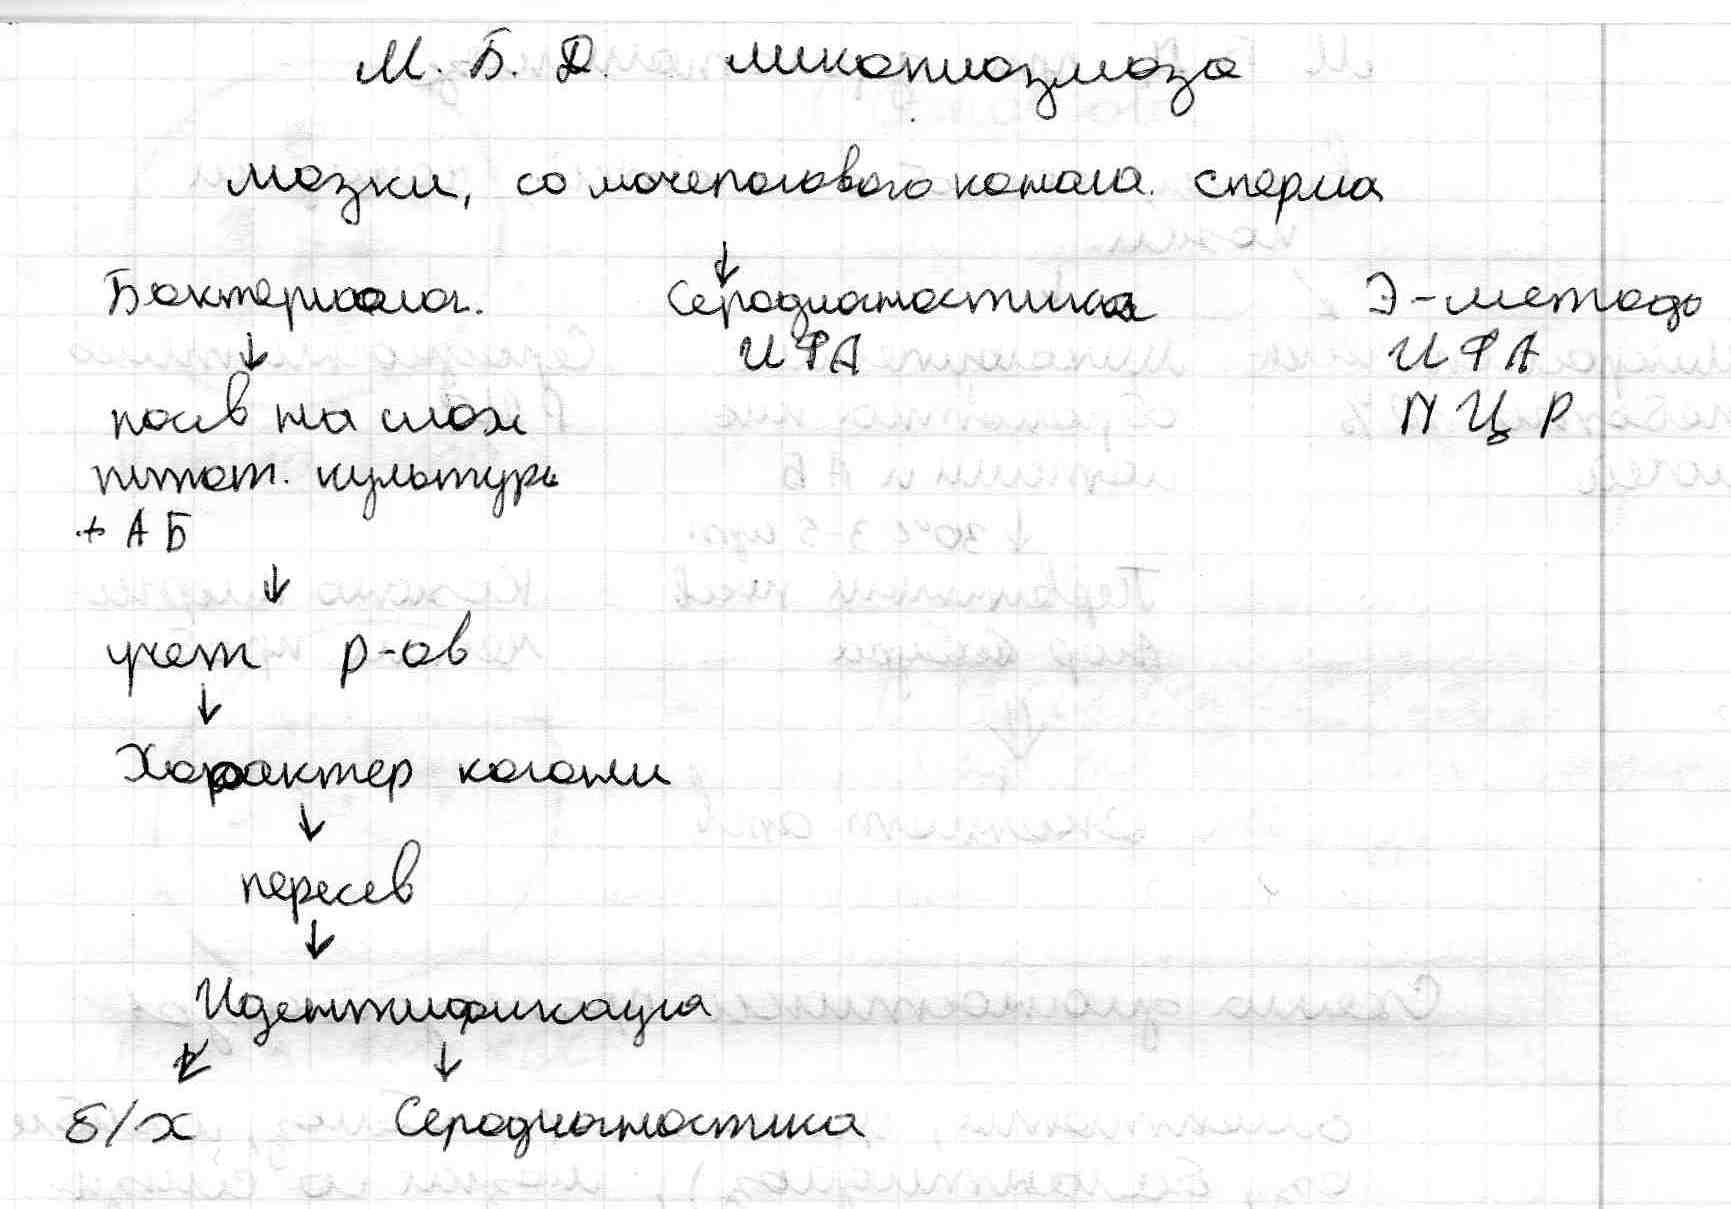 М. Б. Д. микоплазмоза
мазки, со мочеполового канала. сперма
↓
Бактериолог. Серодиагностика Э-методы
↓ ИФА ИФА
посев на слож ПЦР
питат. культуры
+ АБ
↓
учет р-ов
↓
Характер колони
↓
пересев
↓
Идентификация
↙ ↓
б/х Серодиагностика